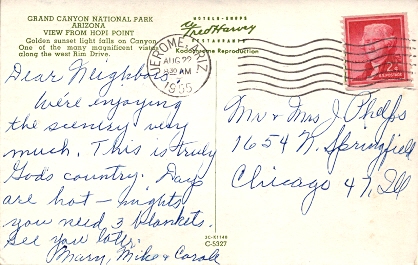 GRAND CANYON NATIONAL PARK
ARIZONA
VIEW FROM HOPI POINT
Golden sunset light falls on Canyon
One of the many magnificent vistas
along the west Rim Drive.
HOTELS - SHOPS
Fred Harvey
RESTAURANTS
Kodachrome Reproduction
JEROME, ARIZ.
AUG 22
AM
1955
2¢
U.S. POSTAGE
Dear Neighbors,
We're enjoying
the scenery very
much. This is truly
Gods country. Days
are hot - nights
you need 3 blankets.
See you later.
Mary, Mike & Carole
C-5327
Mr & Mrs J Phelps
1654 N. Springfield
Chicago 47, Ill